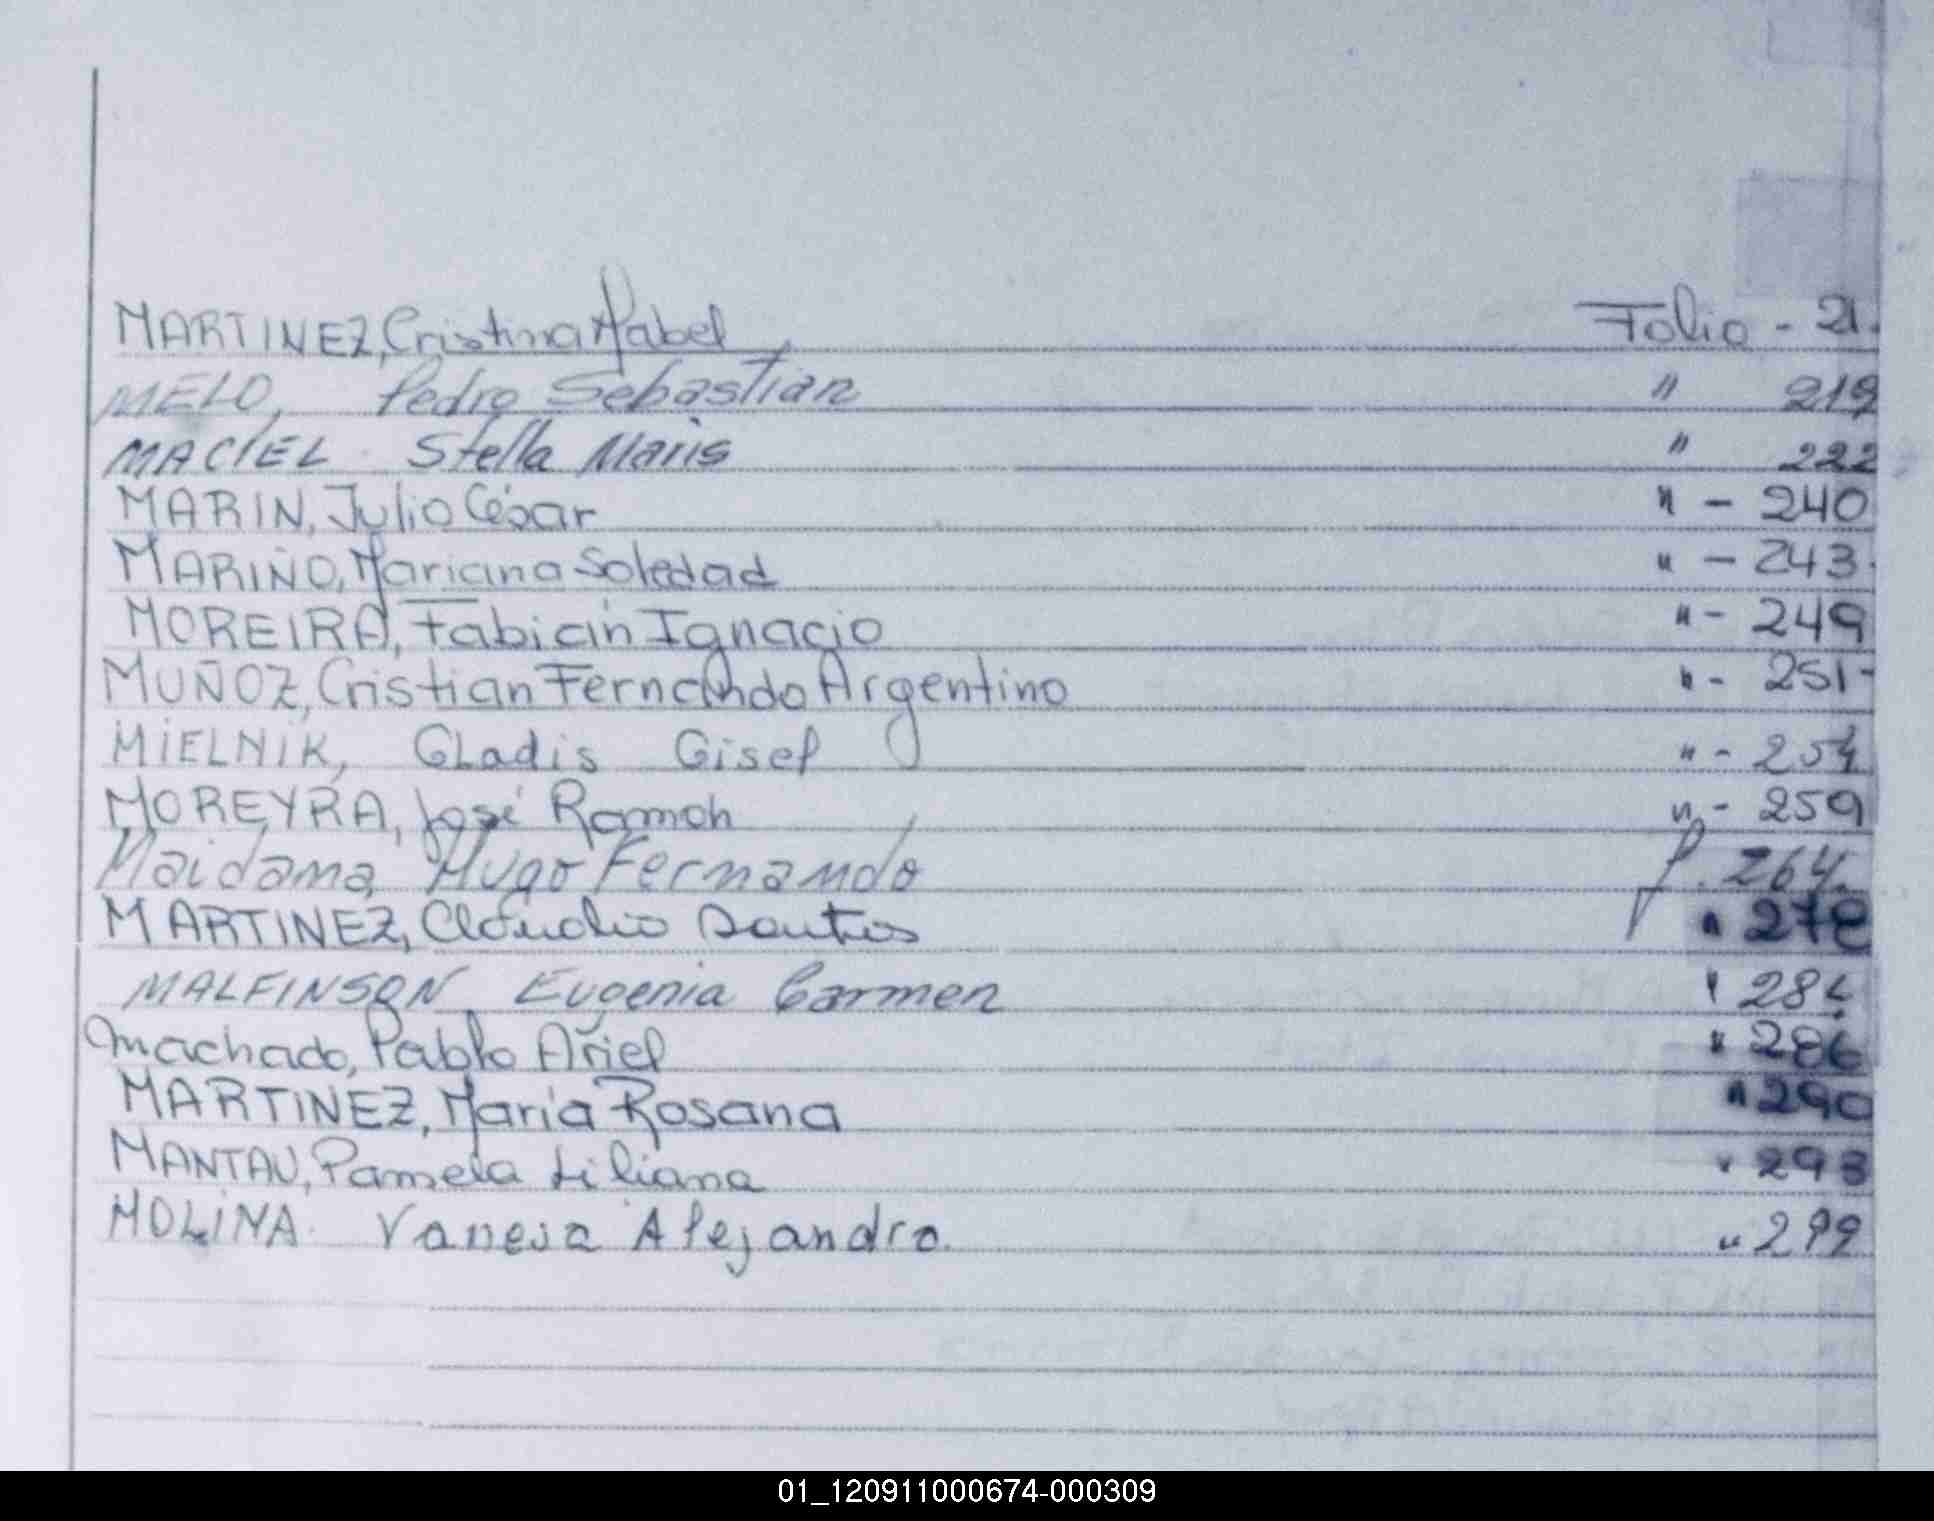 MARTINEZ, Cristina Mabel Folio - 21
MELO, Pedro Sebastian " 219
MACIEL Stella Maris " 222
MARIN, Julio César " - 240
MARIÑO, Mariana Soledad " - 243
MOREIRA, Fabián Ignacio " - 249
MUÑOZ, Cristian Fernando Argentino " - 251 -
MIELNIK, GLadis Gisel " - 254
MOREYRA, José Ramon " - 259
Maidama, Hugo Fernando f. 264.
MARTINEZ, Claudio Santos " 278
MALFINSON Eugenia Carmen " 284
Machado, Pablo Ariel " 286
MARTINEZ, María Rosana " 290
MANTAU, Pamela Liliana " 293
MOLINA. Vanesa Alejandra. " 299
01_120911000674-000309